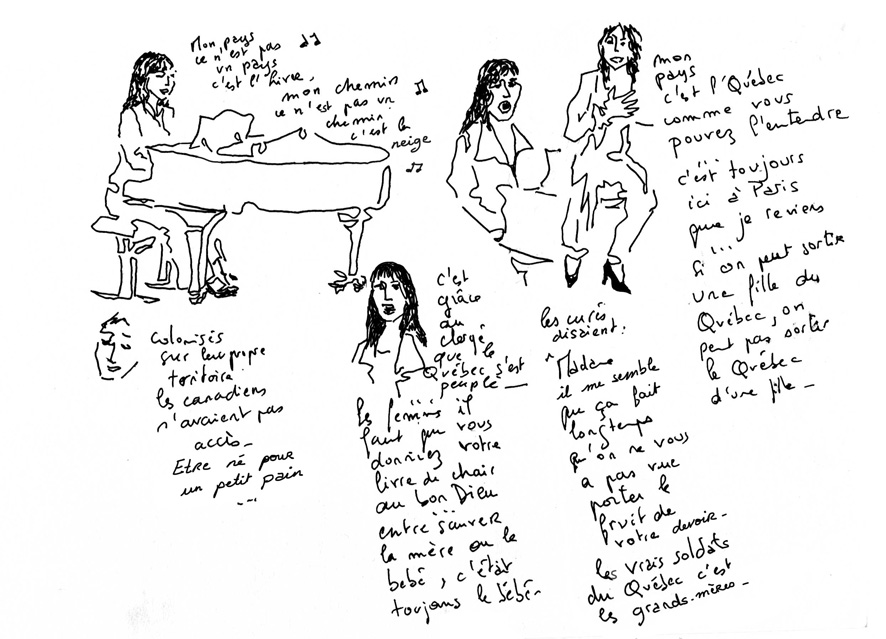 Mon pays
ce n'est pas
un pays
c'est l'hiver,
mon chemin
ce n'est pas un
chemin
c'est la
neige
mon
pays
c'est l'Québec
comme vous
pouvez l'entendre
...
c'est toujours
ici à Paris
que je reviens
...
Si on peut sortir
une fille du
Québec, on
peut pas sortir
le Québec
d'une fille -
colonisés
sur leur propre
territoire
les canadiens
n'avaient pas
accès -
Etre né pour
un petit pain
...
c'est
grâce
au
clergé
que le
Québec s'est
peuplé -
...
les femmes il
faut que vous
donniez votre
livre de chair
au bon Dieu
...
entre sauver
la mère ou le
bébé, c'était
toujours le bébé -
les curés
disaient :
"Madame
il me semble
que ça fait
longtemps
qu'on ne vous
a pas vue
porter le
fruit de
votre devoir -
les vrais soldats
du Québec c'est
les grands-mères -